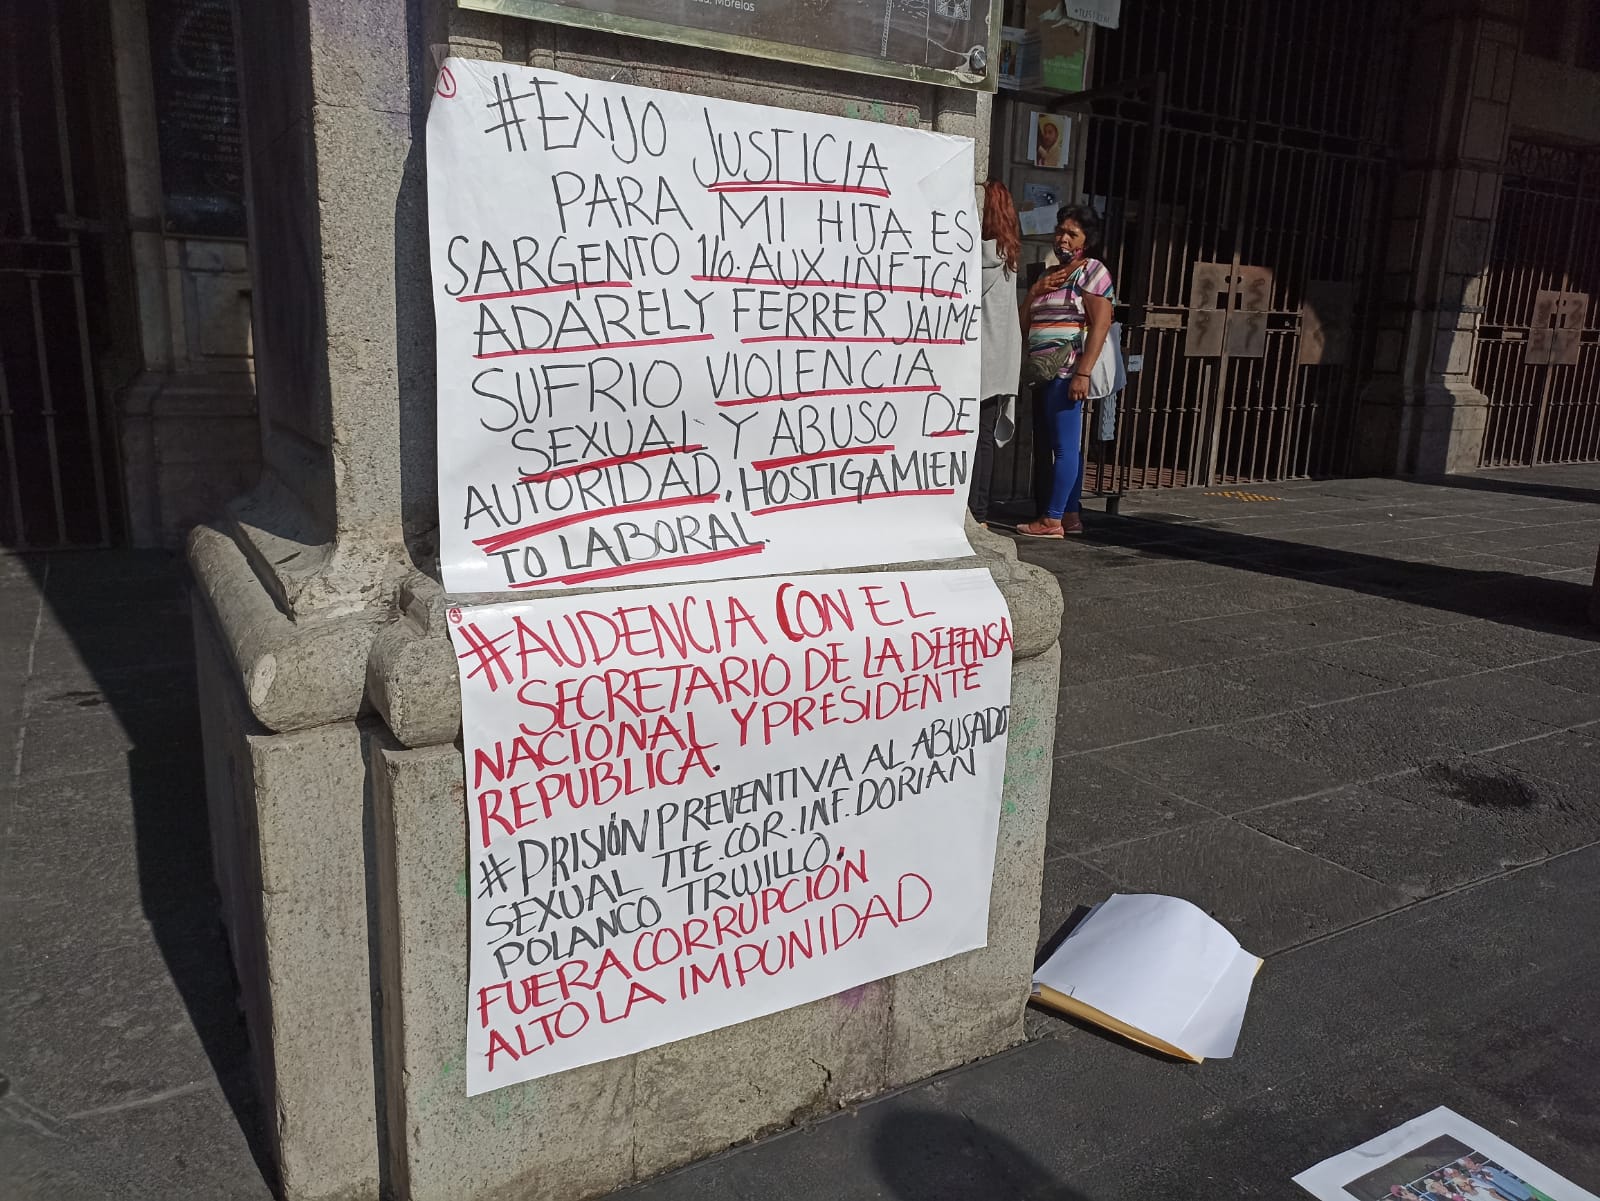 Morelos
1
#EXIJO JUSTICIA
PARA MI HIJA ES
SARGENTO 1/o. AUX. INFTCA.
ADARELY FERRER JAIME
SUFRIO VIOLENCIA
SEXUAL Y ABUSO DE
AUTORIDAD, HOSTIGAMIEN
TO LABORAL.
#AUDENCIA CON EL
SECRETARIO DE LA DEFENSA
NACIONAL Y PRESIDENTE
REPUBLICA.
#PRISIÓN PREVENTIVA AL ABUSADOR
SEXUAL TTE. COR. INF. DORIAN
POLANCO TRUJILLO.
FUERA CORRUPCIÓN
ALTO LA IMPUNIDAD